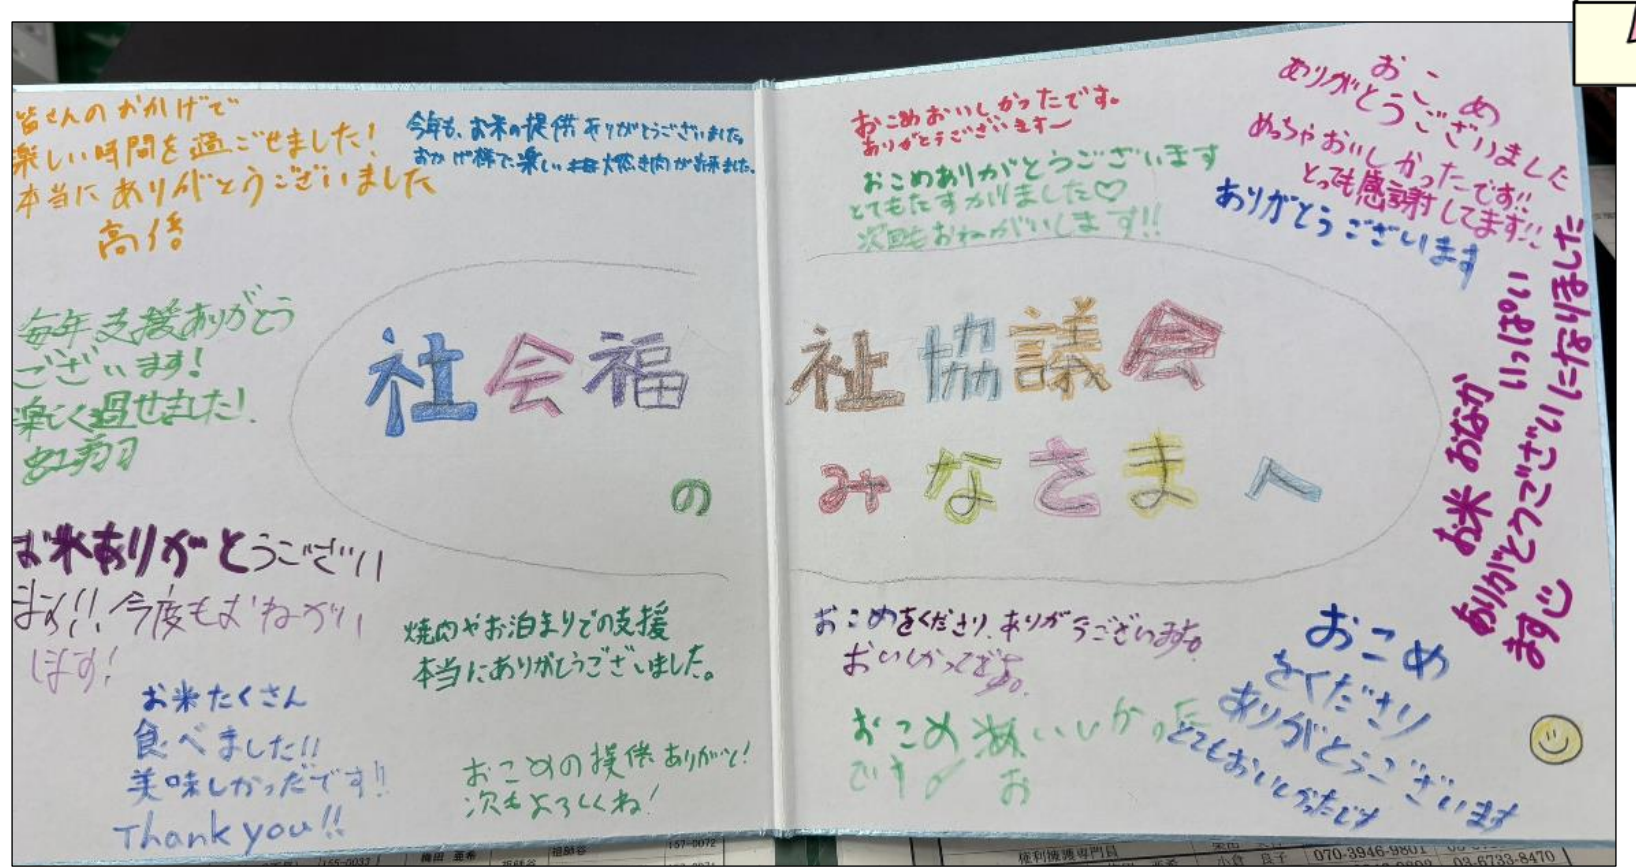 皆さんのおかげで
楽しい時間を過ごせました!
本当にありがとうございました
今年も、お米の提供ありがとうございました。
おかげ様で、楽しい大焼き肉が出来ました。
毎年支援ありがとう
ございます!
楽しく過せました!
お米ありがとうござい
ます!!今度もおねがい
します!
お米たくさん
食べました!!
美味しかったです!!
Thank you!!
焼肉やお泊まりでの支援
本当にありがとうございました。
おこめの提供ありがと!
次もよろしくね!
社会福祉協議会
の みなさまへ
おこめおいしかったです。
ありがとうございます〜
おこめありがとうございます
とてもたすかりました♡
次回もおねがいします!!
おこめ
ありがとうございました
めっちゃおいしかったです!!
とっても感謝してます!!
ありがとうございます
お米 おなか いっぱい
になりました
ありがとうござい
ます
おこめをくださり、ありがうございます。
おこめ
いしかった
です
お
おこめ
をくださり
ありがとうございます
とてもおいしかったです
権利擁護専門員
070-3946-9801
03-6733-8470
155-0033
157-0072